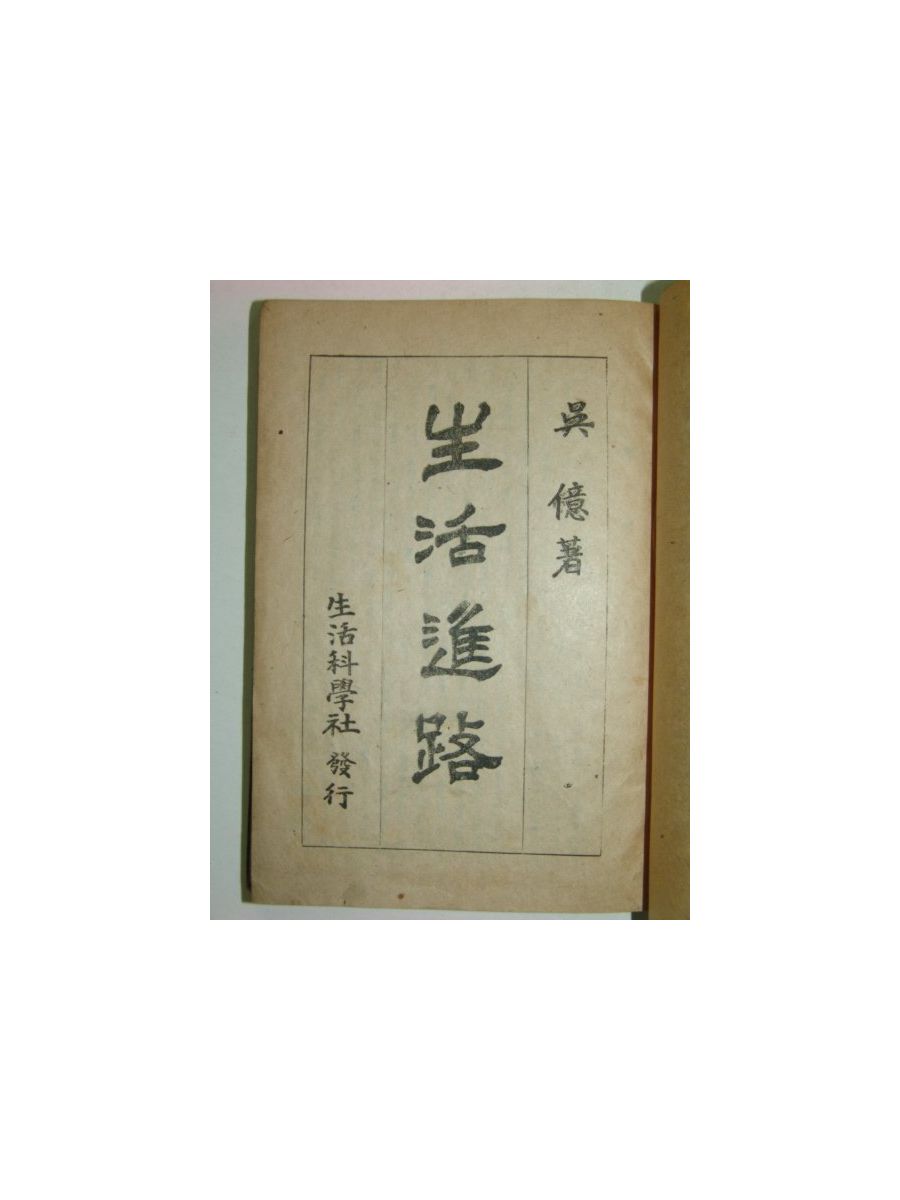 吳 億 著
生活進路
生活科學社 發行